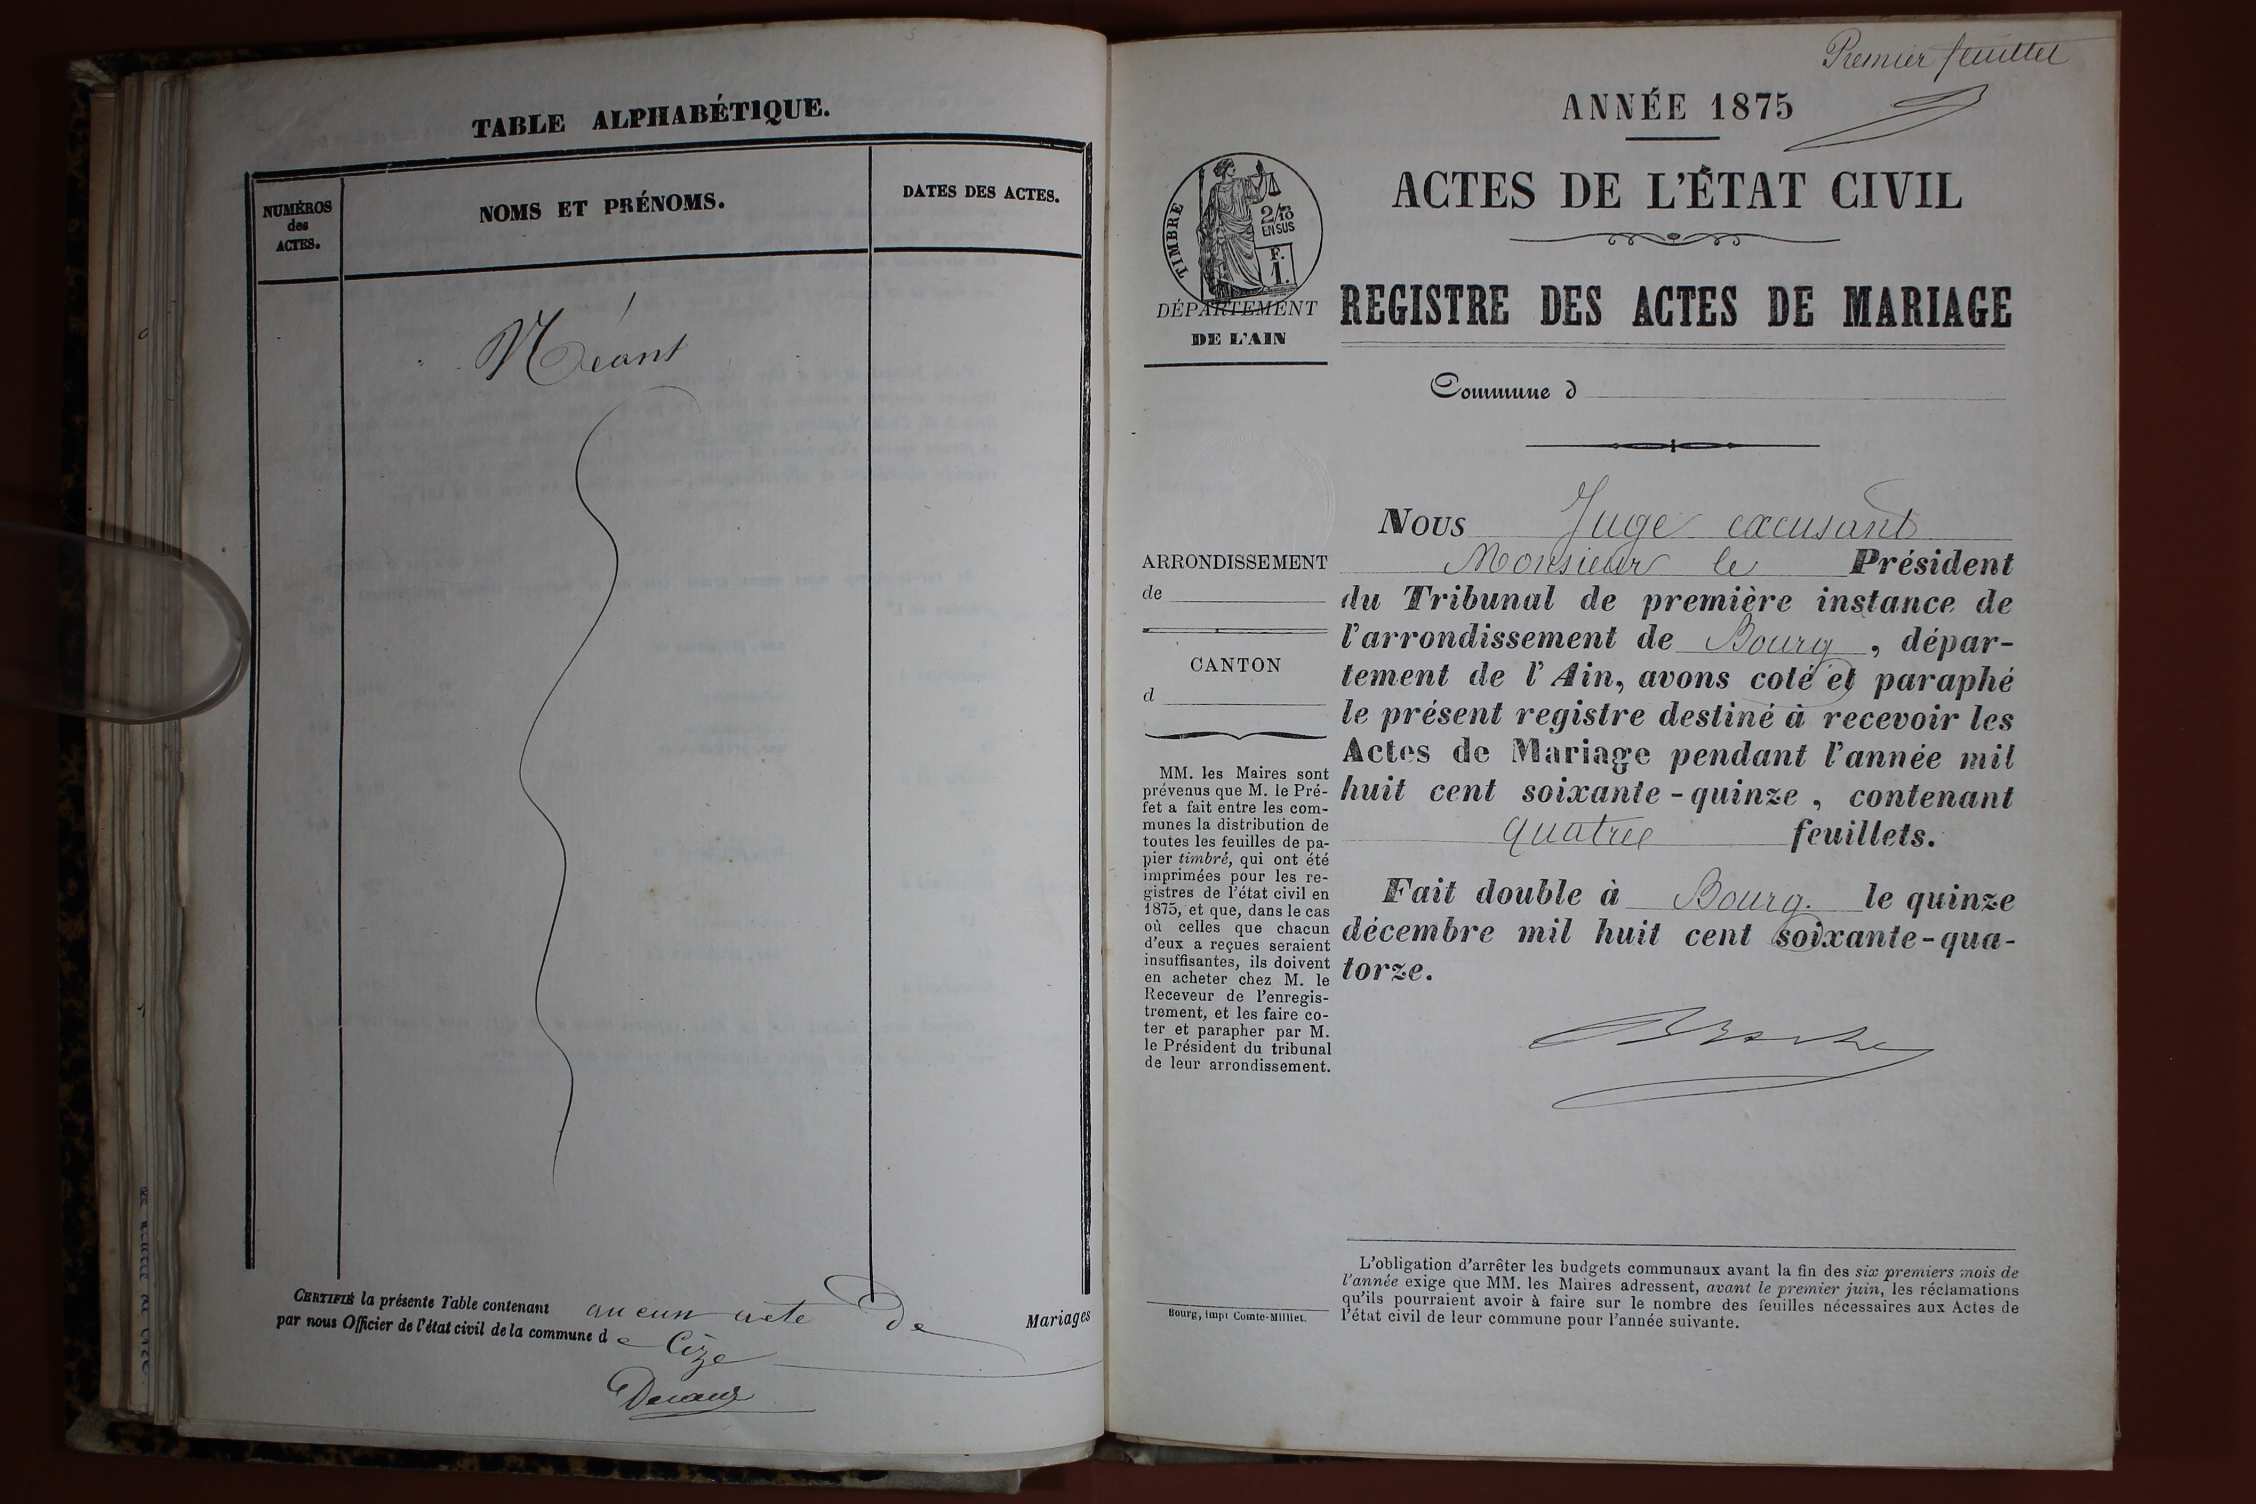 TABLE ALPHABÉTIQUE.
NUMÉROS
des
ACTES.
NOMS ET PRÉNOMS.
DATES DES ACTES.
Néant
CERTIFIÉ la présente Table contenant aucun acte de Mariages
par nous Officier de l'état civil de la commune de Cize
Premier feuillet
ANNÉE 1875
ACTES DE L'ÉTAT CIVIL
TIMBRE
2/10
EN SUS
F.
1.
DÉPARTEMENT
DE L'AIN
REGISTRE DES ACTES DE MARIAGE
Commune d
ARRONDISSEMENT
de
CANTON
d
MM. les Maires sont
prévenus que M. le Pré-
fet a fait entre les com-
munes la distribution de
toutes les feuilles de pa-
pier timbré, qui ont été
imprimées pour les re-
gistres de l'état civil en
1875, et que, dans le cas
où celles que chacun
d'eux a reçues seraient
insuffisantes, ils doivent
en acheter chez M. le
Receveur de l'enregis-
trement, et les faire co-
ter et parapher par M.
le Président du tribunal
de leur arrondissement.
Nous Juge excusant
Monsieur le Président
du Tribunal de première instance de
l'arrondissement de Bourg, dépar-
tement de l'Ain, avons coté et paraphé
le présent registre destiné à recevoir les
Actes de Mariage pendant l'année mil
huit cent soixante-quinze, contenant
quatre feuillets.
Fait double à Bourg. le quinze
décembre mil huit cent soixante-qua-
torze.
Bourg, impr Comte-Milliet.
L'obligation d'arrêter les budgets communaux avant la fin des six premiers mois de
l'année exige que MM. les Maires adressent, avant le premier juin, les réclamations
qu'ils pourraient avoir à faire sur le nombre des feuilles nécessaires aux Actes de
l'état civil de leur commune pour l'année suivante.